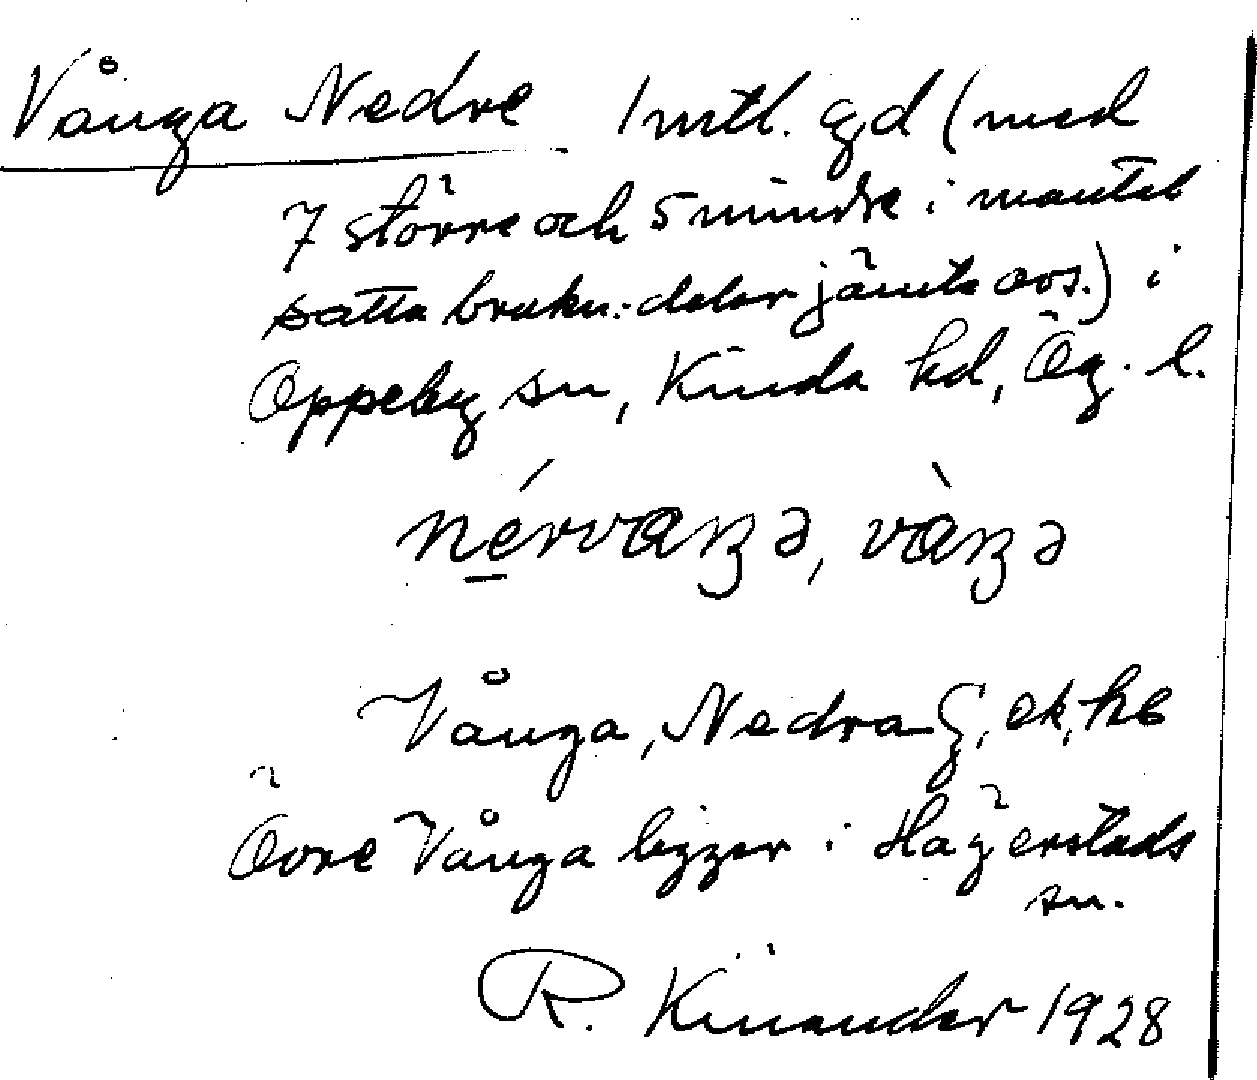 Vånga Nedre 1 mtl. gd (med
7 större och 5 mindre i mantal
satta brukn.-delar jämte avs.) i
Oppeby sn, Kinda hd, Ög. l.
nérvaŋə, vàŋə
Vånga, Nedra G, ek, hb
Övre Vånga ligger i Hägerstads
sn.
R. Kinander 1928